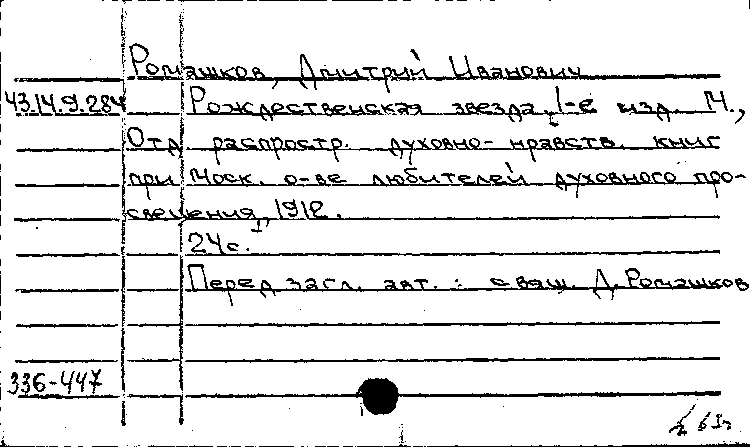 Ромашков, Дмитрий Иванович
43.14.9.284 Рождественская звезда. 1-е изд. М.,
Отд. распростр. духовно-нравств. книг
при Моск. о-ве любителей духовного про-
свещения, 1912.
24 с.
Перед загл. авт.: свящ. Д. Ромашков
336-447